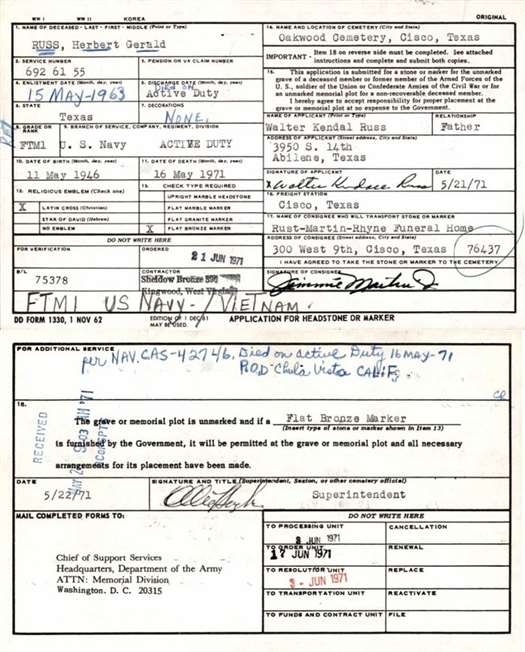 WW I WW II KOREA ORIGINAL
1. NAME OF DECEASED - LAST - FIRST - MIDDLE (Print or Type)
RUSS, Herbert Gerald
14. NAME AND LOCATION OF CEMETERY (City and State)
Oakwood Cemetery, Cisco, Texas
2. SERVICE NUMBER
692 61 55
3. PENSION OR VA CLAIM NUMBER
IMPORTANT - Item 18 on reverse side must be completed. See attached
instructions and complete and submit both copies.
4. ENLISTMENT DATE (Month, day, year)
15 MAY-1963
5. DISCHARGE DATE (Month, day, year)
Died on
Active Duty
15. This application is submitted for a stone or marker for the unmarked
grave of a deceased member or former member of the Armed Forces of the
U. S., soldier of the Union or Confederate Armies of the Civil War or for
an unmarked memorial plot for a non-recoverable deceased member.
I hereby agree to accept responsibility for proper placement at the
grave or memorial plot at no expense to the Government.
6. STATE
Texas
7. DECORATIONS
NONE.
8. GRADE OR
RANK
FTM1
9. BRANCH OF SERVICE, COMPANY, REGIMENT, DIVISION
U. S. Navy ACTIVE DUTY
NAME OF APPLICANT (Print or Type) RELATIONSHIP
Walter Kendal Russ Father
ADDRESS OF APPLICANT (Street address, City and State)
3950 S. 14th
Abilene, Texas
10. DATE OF BIRTH (Month, day, year)
11 May 1946
11. DATE OF DEATH (Month, day, year)
16 May 1971
SIGNATURE OF APPLICANT DATE
X Walter Kendal Russ 5/21/71
12. RELIGIOUS EMBLEM (Check one)
X LATIN CROSS (Christian)
STAR OF DAVID (Hebrew)
NO EMBLEM
13. CHECK TYPE REQUIRED
UPRIGHT MARBLE HEADSTONE
FLAT MARBLE MARKER
FLAT GRANITE MARKER
X FLAT BRONZE MARKER
16. FREIGHT STATION
Cisco, Texas
17. NAME OF CONSIGNEE WHO WILL TRANSPORT STONE OR MARKER
Rust-Martin-Rhyne Funeral Home
DO NOT WRITE HERE
ADDRESS OF CONSIGNEE (Street address, City and State)
300 West 9th, Cisco, Texas 76437
FOR VERIFICATION
ORDERED
21 JUN 1971
I HAVE AGREED TO TAKE THE STONE OR MARKER TO THE CEMETERY
B/L
75378
CONTRACTOR
Sheidow Bronze
Kingwood, West Virginia
SIGNATURE OF CONSIGNEE
Jimmie Martin Jr.
FTM1 US NAVY-/VIETNAM.
DD FORM 1330, 1 NOV 62
EDITION OF 1 DEC 61
MAY BE USED.
APPLICATION FOR HEADSTONE OR MARKER
FOR ADDITIONAL SERVICE
per NAV. CAS-42746, Died on active Duty 16 MAY-71
P.O.D-Chula Vista CALIF,
18.
The grave or memorial plot is unmarked and if a Flat Bronze Marker
(Insert type of stone or marker shown in Item 13)
is furnished by the Government, it will be permitted at the grave or memorial plot and all necessary
arrangements for its placement have been made.
RECEIVED
DATE
5/22/71
SIGNATURE AND TITLE (Superintendent, Sexton, or other cemetery official)
Superintendent
MAIL COMPLETED FORMS TO:
Chief of Support Services
Headquarters, Department of the Army
ATTN: Memorial Division
Washington. D. C. 20315
DO NOT WRITE HERE
TO PROCESSING UNIT CANCELLATION
JUN 1971
TO ORDER UNIT RENEWAL
17 JUN 1971
TO RESOLUTION UNIT REPLACE
JUN 1971
TO TRANSPORTATION UNIT REACTIVATE
TO FUNDS AND CONTRACT UNIT FILE